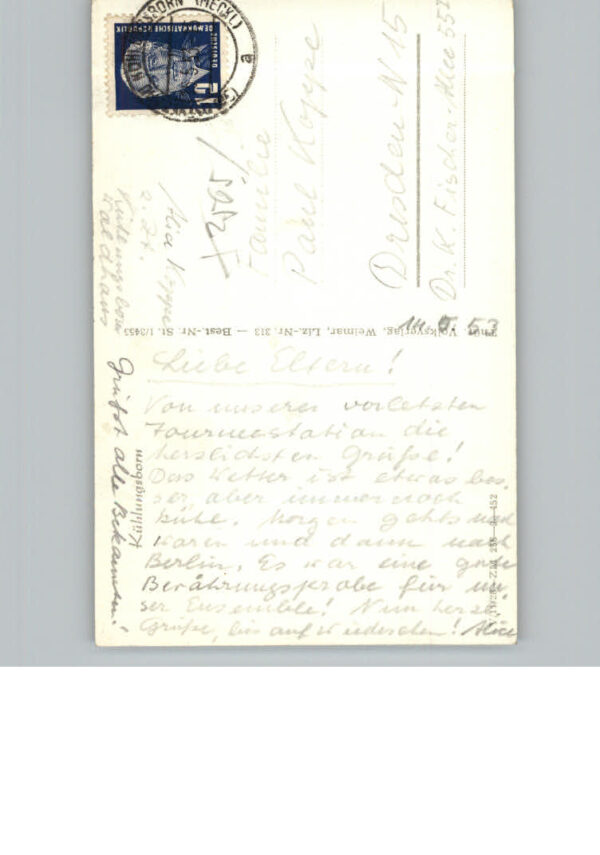 DEUTSCHE
DEMOKRATISCHE REPUBLIK
(MECKL)
a
Familie
Paul Koppe
Dresden-N 15
Dr. K. Fischer-Allee
z. Zt.
Kühlungsborn
Waldhaus
Thür. Volksverlag, Weimar, Liz.-Nr. 313 — Best.-Nr. St. 1/3453
53
Liebe Eltern!
Von unserer vorletzten
Tourneestation die
herzlichsten Grüße!
Das Wetter ist etwas bes-
ser aber immer noch
kühl. Morgen gehts nach
Waren und dann nach
Berlin. Es war eine gute
Bewährungsprobe für un-
ser Ensemble! Nun herzl.
Grüße, bis auf Wiedersehen! Alice
Grüßt alle Bekannten!
Kühlungsborn